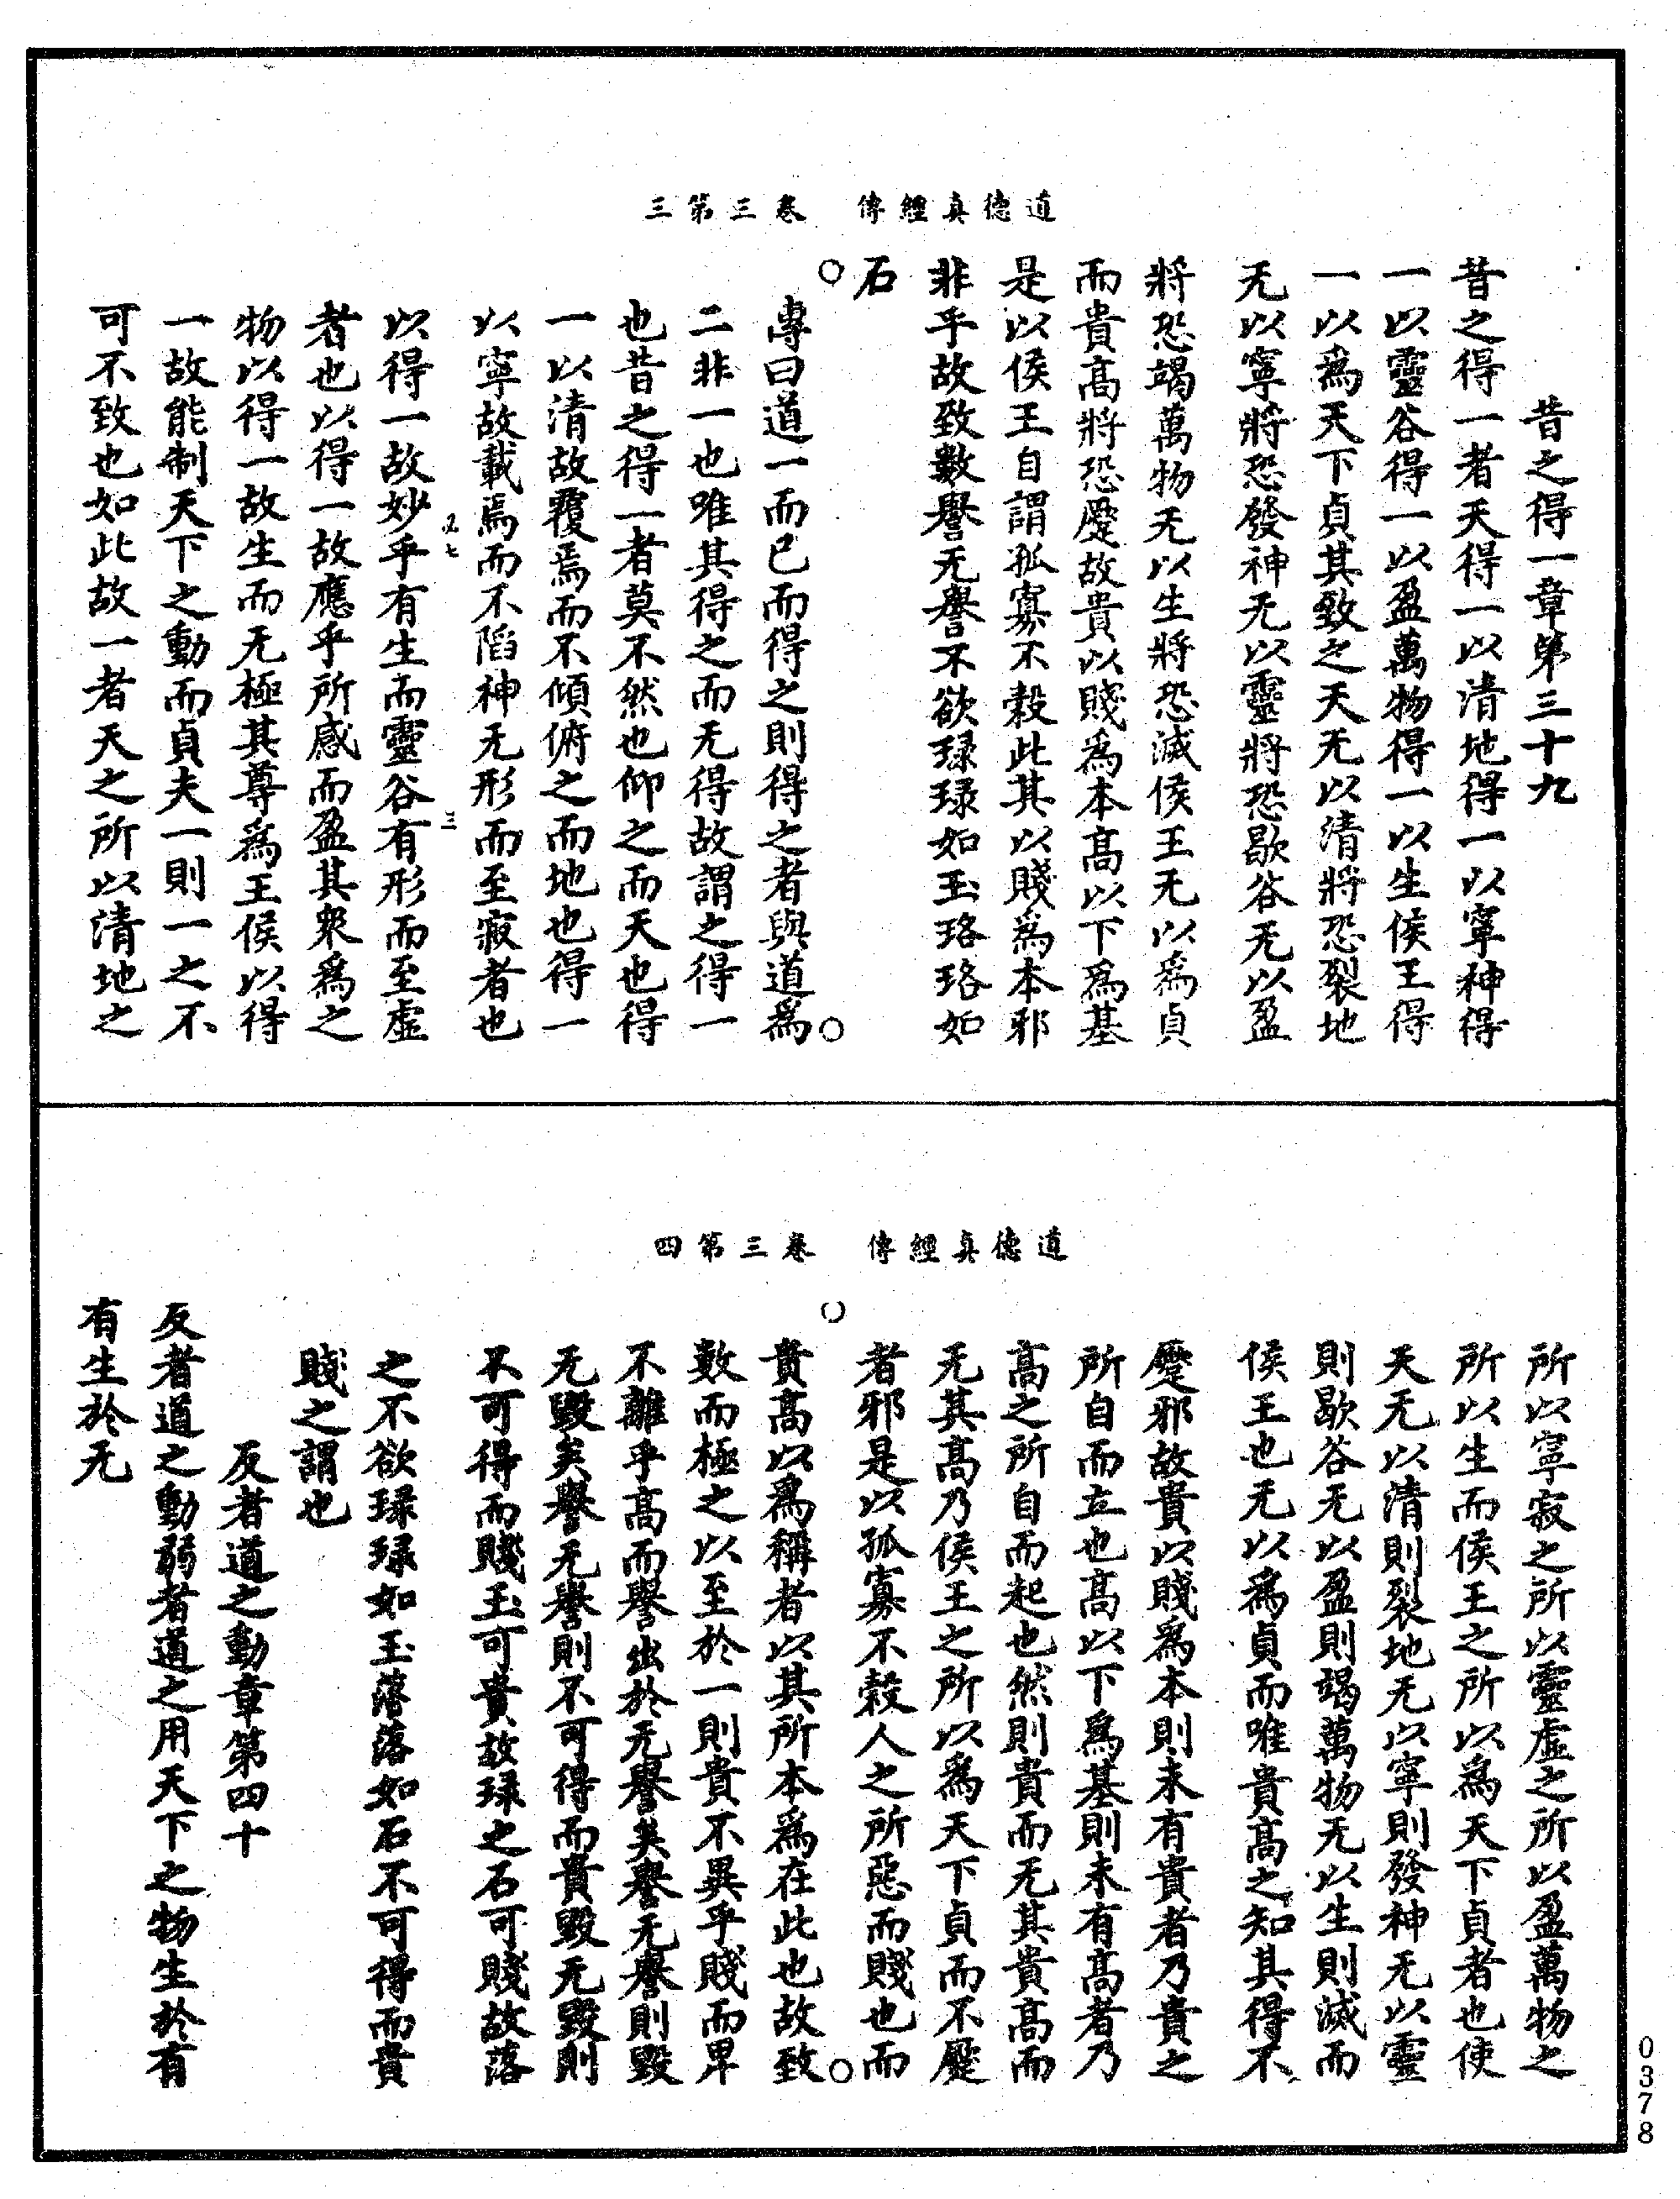 道德真經傳　卷三第三
昔之得一章第三十九
昔之得一者天得一以清地得一以寧神得
一以靈谷得一以盈萬物得一以生侯王得
一以爲天下貞其致之天无以清將恐裂地
无以寧將恐發神无以靈將恐歇谷无以盈
將恐竭萬物无以生將恐滅侯王无以爲貞
而貴髙將恐蹷故貴以賤爲本髙以下爲基
是以侯王自謂孤寡不穀此其以賤爲本邪
非乎故致數譽无譽不欲琭琭如玉珞珞如
石
傳曰道一而已而得之則得之者與道爲
二非一也唯其得之而无得故謂之得一
也昔之得一者莫不然也仰之而天也得
一以清故覆焉而不傾俯之而地也得一
以寧故載焉而不陷神无形而至寂者也
三
以得一故妙乎有生而靈谷有形而至虛
者也以得一故應乎所感而盈其衆爲之
物以得一故生而无極其尊爲王侯以得
一故能制天下之動而貞夫一則一之不
可不致也如此故一者天之所以清地之
道德真經傳　卷三第四
所以寧寂之所以靈虛之所以盈萬物之
所以生而侯王之所以爲天下貞者也使
天无以清則裂地无以寧則發神无以靈
則歇谷无以盈則竭萬物无以生則滅而
侯王也无以爲貞而唯貴髙之知其得不
蹷邪故貴以賤爲本則未有貴者乃貴之
所自而立也髙以下爲基則未有髙者乃
髙之所自而起也然則貴而无其貴髙而
无其髙乃侯王之所以爲天下貞而不蹷
者邪是以孤寡不穀人之所惡而賤也而
貴髙以爲稱者以其所本爲在此也故致
數而極之以至於一則貴不異乎賤而卑
不離乎髙而譽出於无譽矣譽无譽則毀
无毀矣譽无譽則不可得而貴毀无毀則
不可得而賤玉可貴故琭之石可賤故落
之不欲琭琭如玉落落如石不可得而貴
賤之謂也
反者道之動章第四十
反者道之動弱者道之用天下之物生於有
有生於无
0378